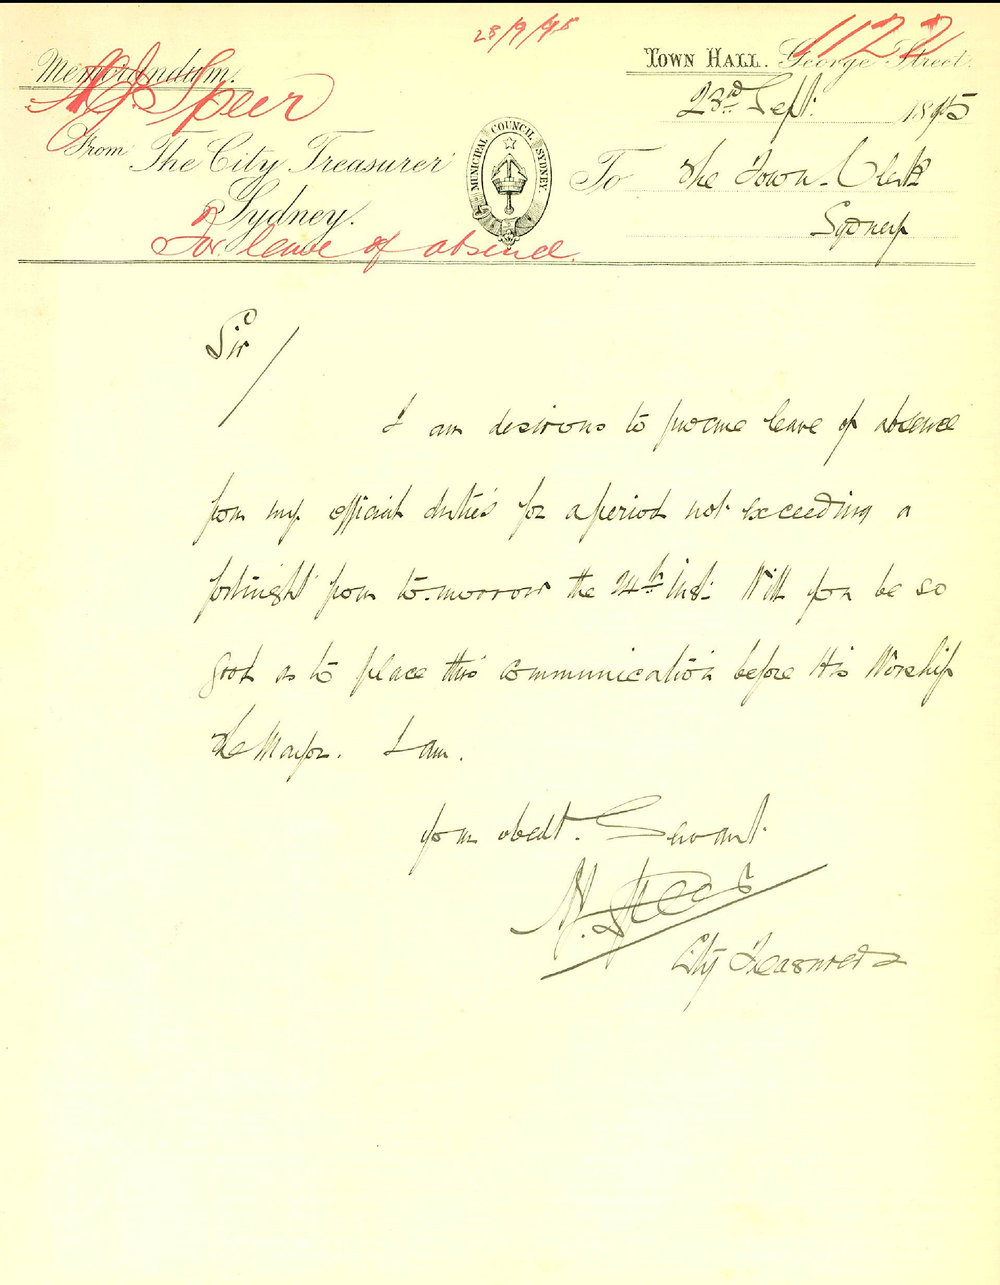 28/9/95
1122
Memorandum.
Town Hall. George Street.
Speer
23rd Sept: 1895
From The City Treasurer
Sydney.
MUNICIPAL COUNCIL. SYDNEY.
To The Town Clerk
Sydney
For leave of absence.
Sir/
I am desirous to procure leave of absence
from my official duties for a period not exceeding a
fortnight from to-morrow the 24th Inst: Will you be so
good as to place this communication before His Worship
the Mayor. I am.
Your obedt. Servant.
Speer
City Treasurer